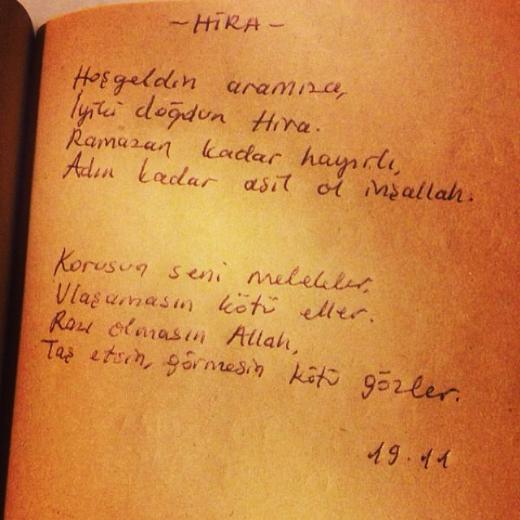 ~HİRA~
Hoşgeldin aramıza,
İyiki doğdun Hira.
Ramazan kadar hayırlı,
Adın kadar asil ol inşallah.
Korusun seni melekler,
Ulaşamasın kötü eller.
Razı olmasın Allah,
Taş etsin, görmesin kötü gözler.
19.11